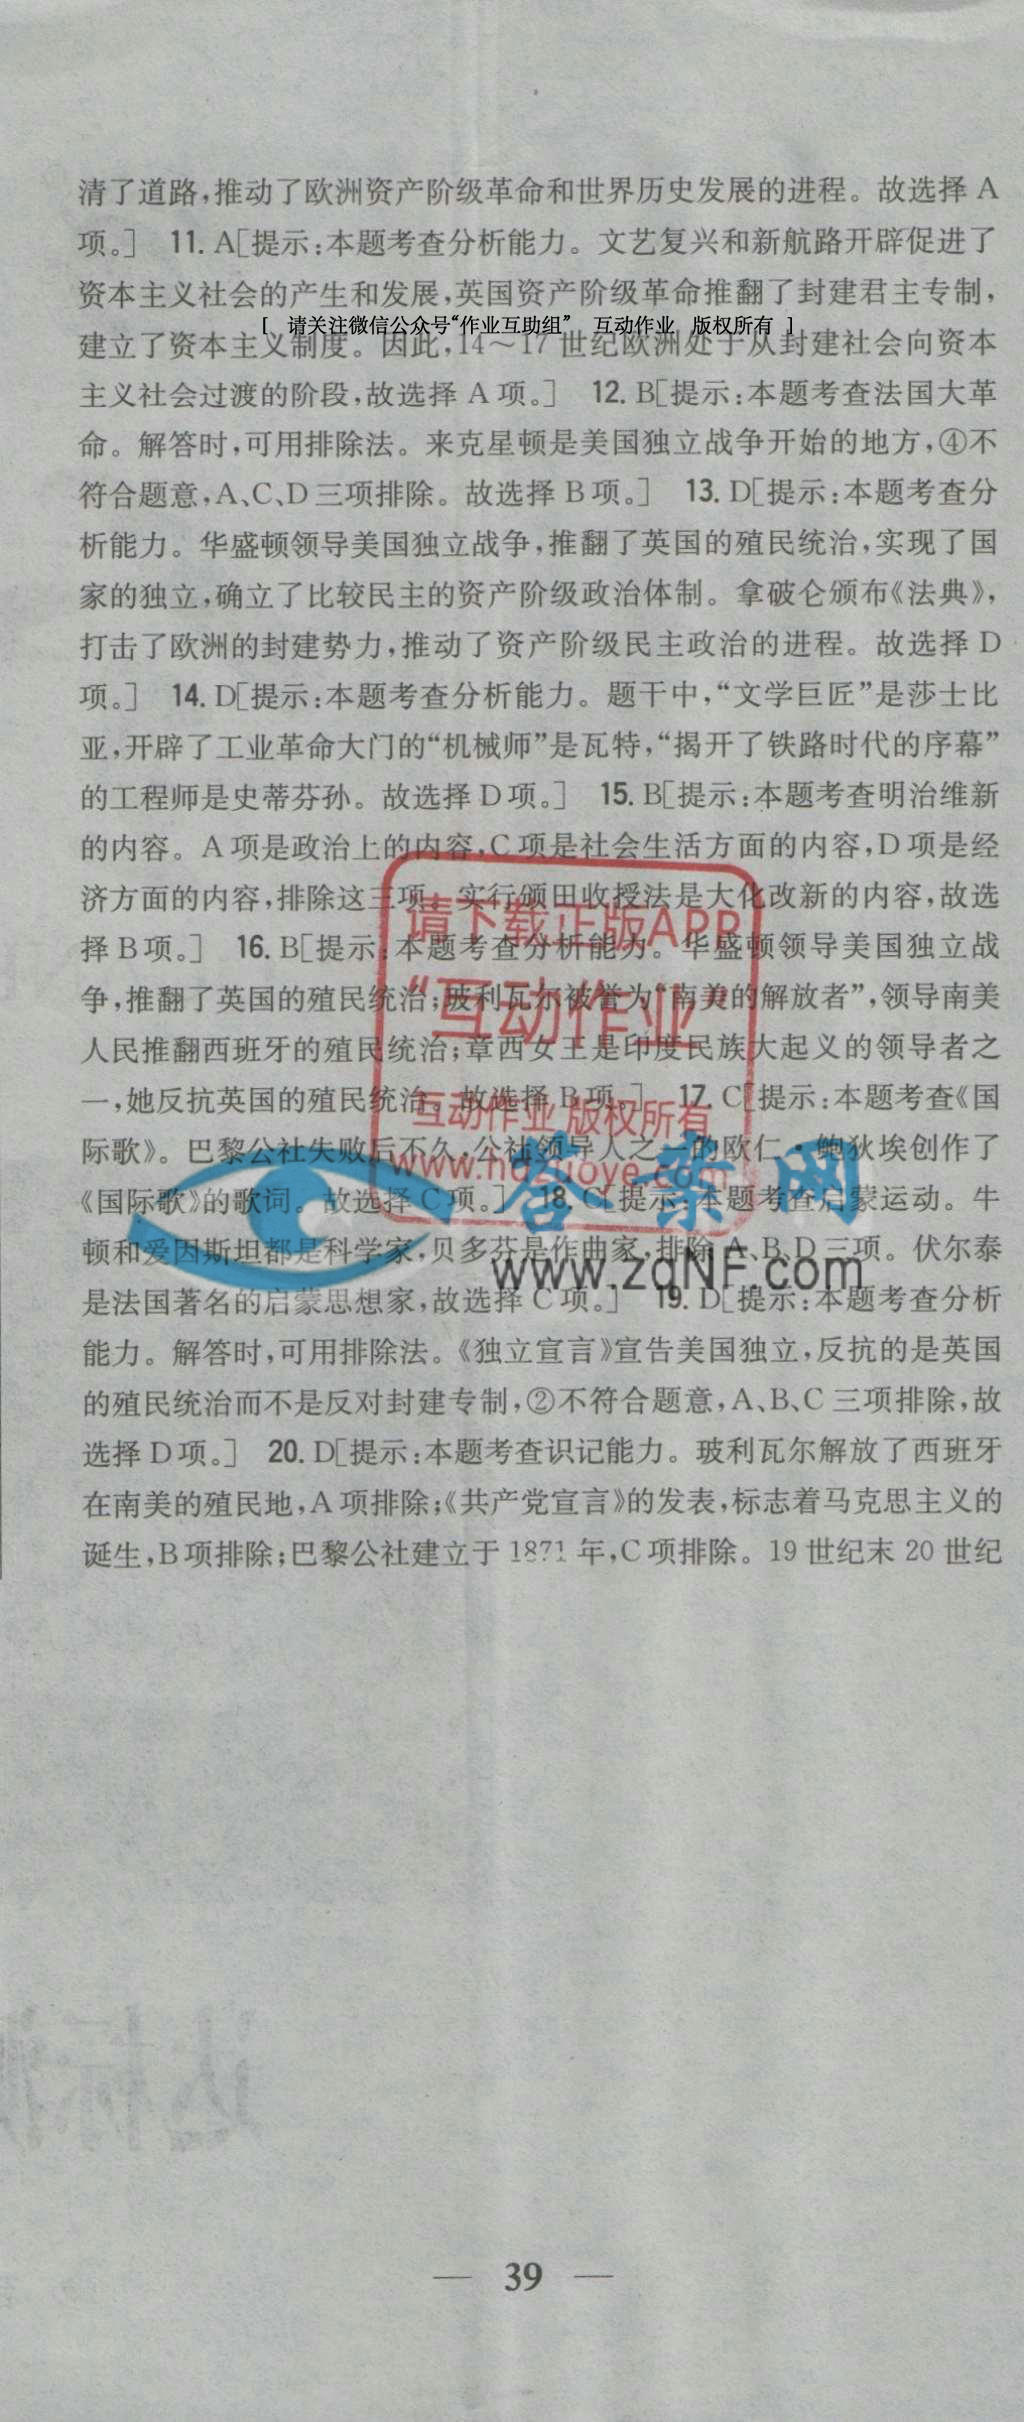 清了道路,推动了欧洲资产阶级革命和世界历史发展的进程。故选择 A
项。] 11. A[提示:本题考查分析能力。文艺复兴和新航路开辟促进了
资本主义社会的产生和发展,英国资产阶级革命推翻了封建君主专制,
[ 请关注微信公众号“作业互助组” 互动作业 版权所有 ]
建立了资本主义制度。因此,14～17 世纪欧洲处于从封建社会向资本
主义社会过渡的阶段,故选择 A 项。] 12. B[提示:本题考查法国大革
命。解答时,可用排除法。来克星顿是美国独立战争开始的地方,④不
符合题意,A、C、D 三项排除。故选择 B 项。] 13. D[提示:本题考查分
析能力。华盛顿领导美国独立战争,推翻了英国的殖民统治,实现了国
家的独立,确立了比较民主的资产阶级政治体制。拿破仑颁布《法典》,
打击了欧洲的封建势力,推动了资产阶级民主政治的进程。故选择 D
项。] 14. D[提示:本题考查分析能力。题干中,“文学巨匠”是莎士比
亚,开辟了工业革命大门的“机械师”是瓦特,“揭开了铁路时代的序幕”
的工程师是史蒂芬孙。故选择 D 项。] 15. B[提示:本题考查明治维新
的内容。A 项是政治上的内容,C 项是社会生活方面的内容,D 项是经
济方面的内容,排除这三项。实行颁田收授法是大化改新的内容,故选
择 B 项。] 16. B[提示:本题考查分析能力。华盛顿领导美国独立战
争,推翻了英国的殖民统治;玻利瓦尔被誉为“南美的解放者”,领导南美
人民推翻西班牙的殖民统治;章西女王是印度民族大起义的领导者之
一,她反抗英国的殖民统治。故选择 B 项。] 17. C[提示:本题考查《国
际歌》。巴黎公社失败后不久,公社领导人之一的欧仁·鲍狄埃创作了
《国际歌》的歌词。故选择 C 项。] 18. C[提示:本题考查启蒙运动。牛
顿和爱因斯坦都是科学家,贝多芬是作曲家,排除 A、B、D 三项。伏尔泰
是法国著名的启蒙思想家,故选择 C 项。] 19. D[提示:本题考查分析
能力。解答时,可用排除法。《独立宣言》宣告美国独立,反抗的是英国
的殖民统治而不是反对封建专制,②不符合题意,A、B、C 三项排除,故
选择 D 项。] 20. D[提示:本题考查识记能力。玻利瓦尔解放了西班牙
在南美的殖民地,A 项排除;《共产党宣言》的发表,标志着马克思主义的
诞生,B 项排除;巴黎公社建立于 1871 年,C 项排除。19 世纪末 20 世纪
请下载正版APP
“互动作业”
互动作业 版权所有
www.hdzuoye.com
答案网
www.zqNF.com
— 39 —